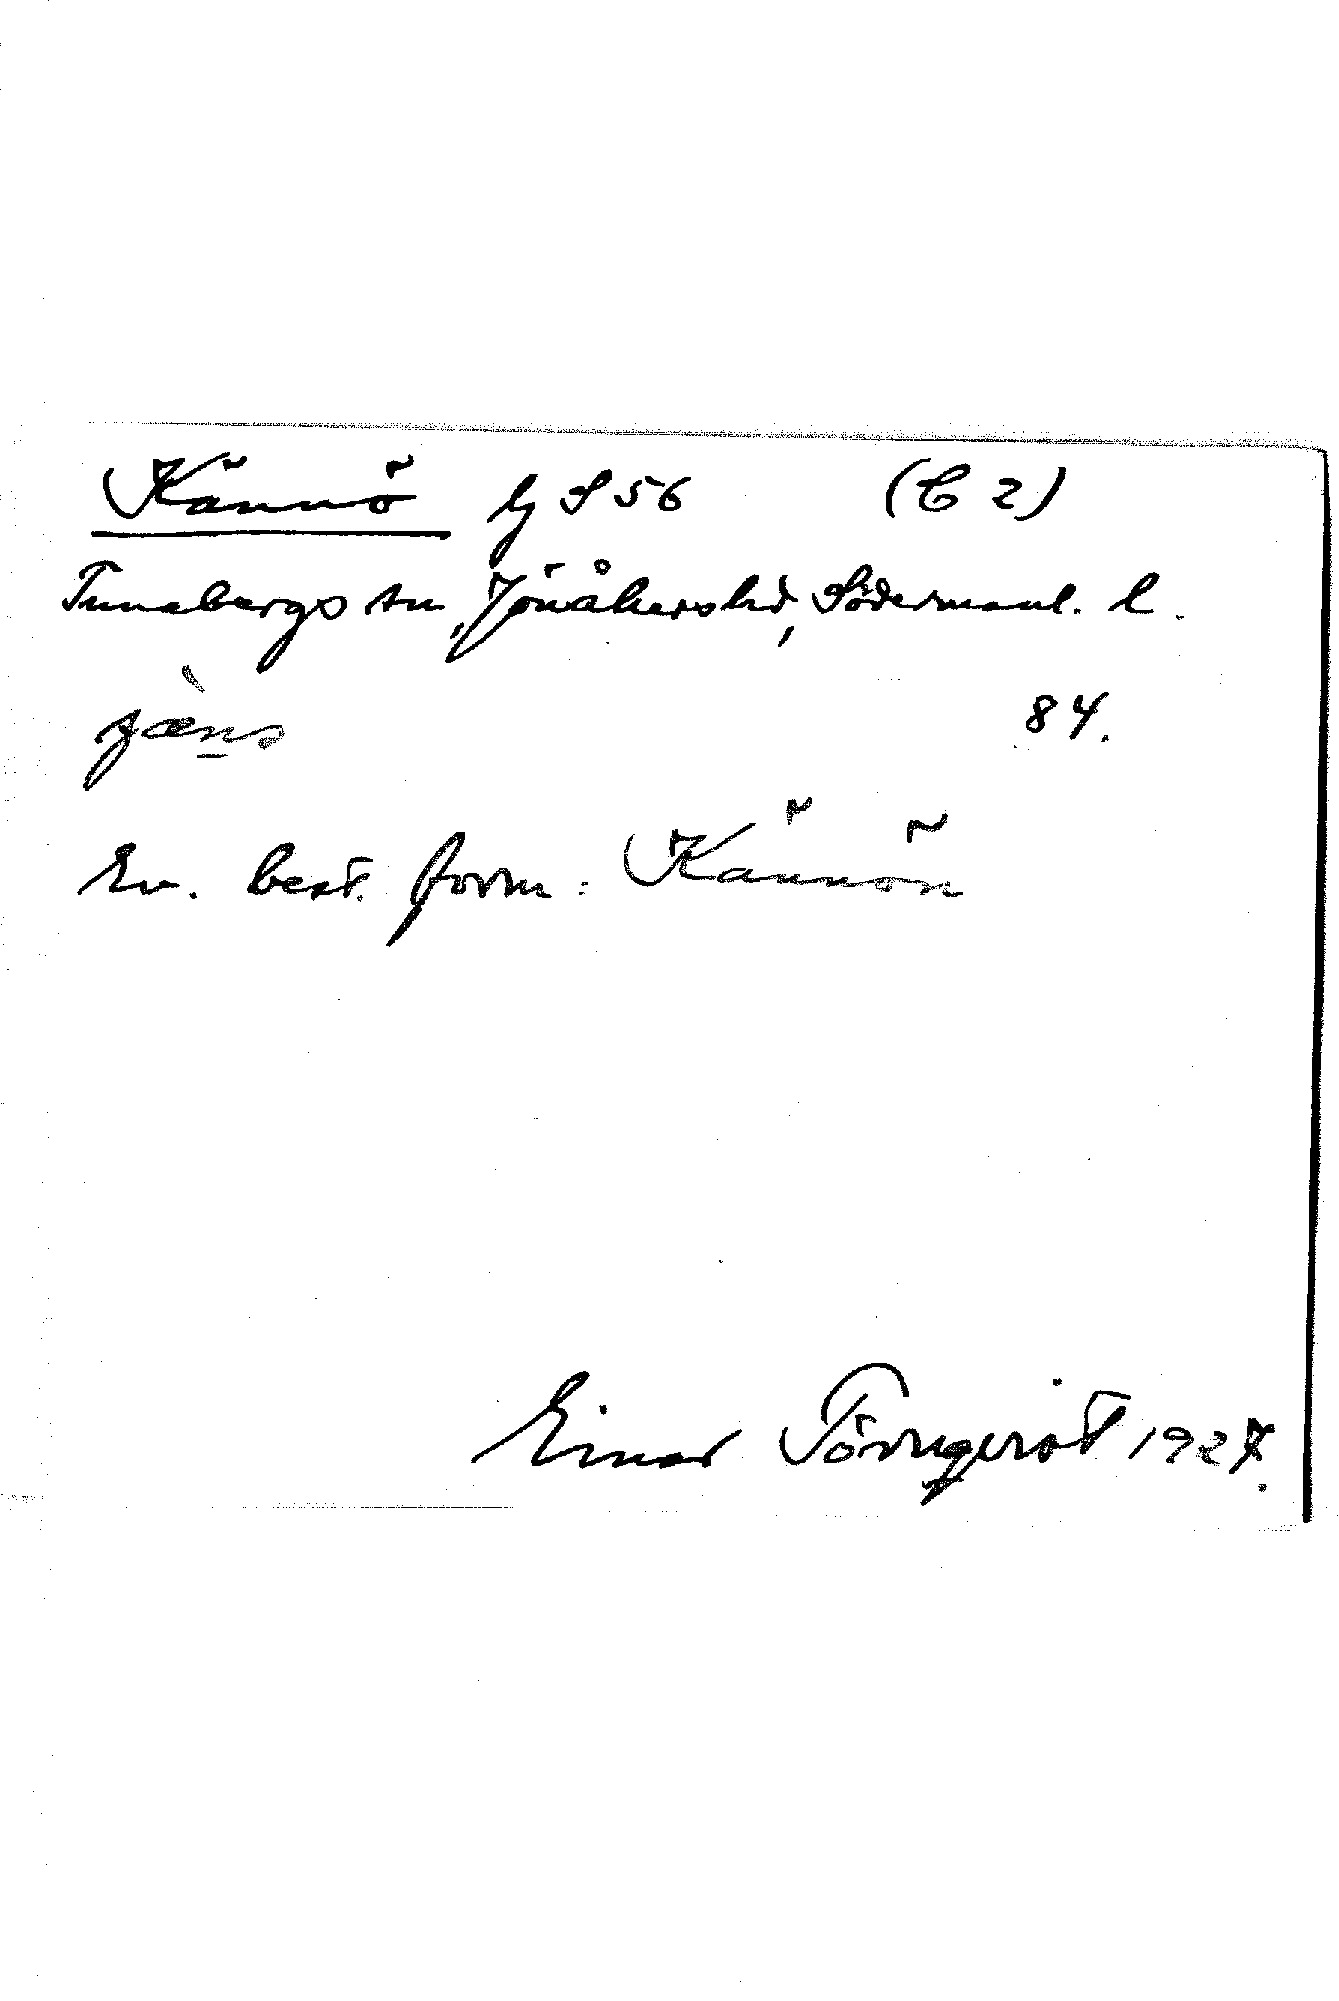 Kännö by S 56 (C 2)
Tunabergs sn, Jönåkers hd, Södermanl. l.
84.
Ev. best. form: Kännön
Einar Törnqvist 1927.